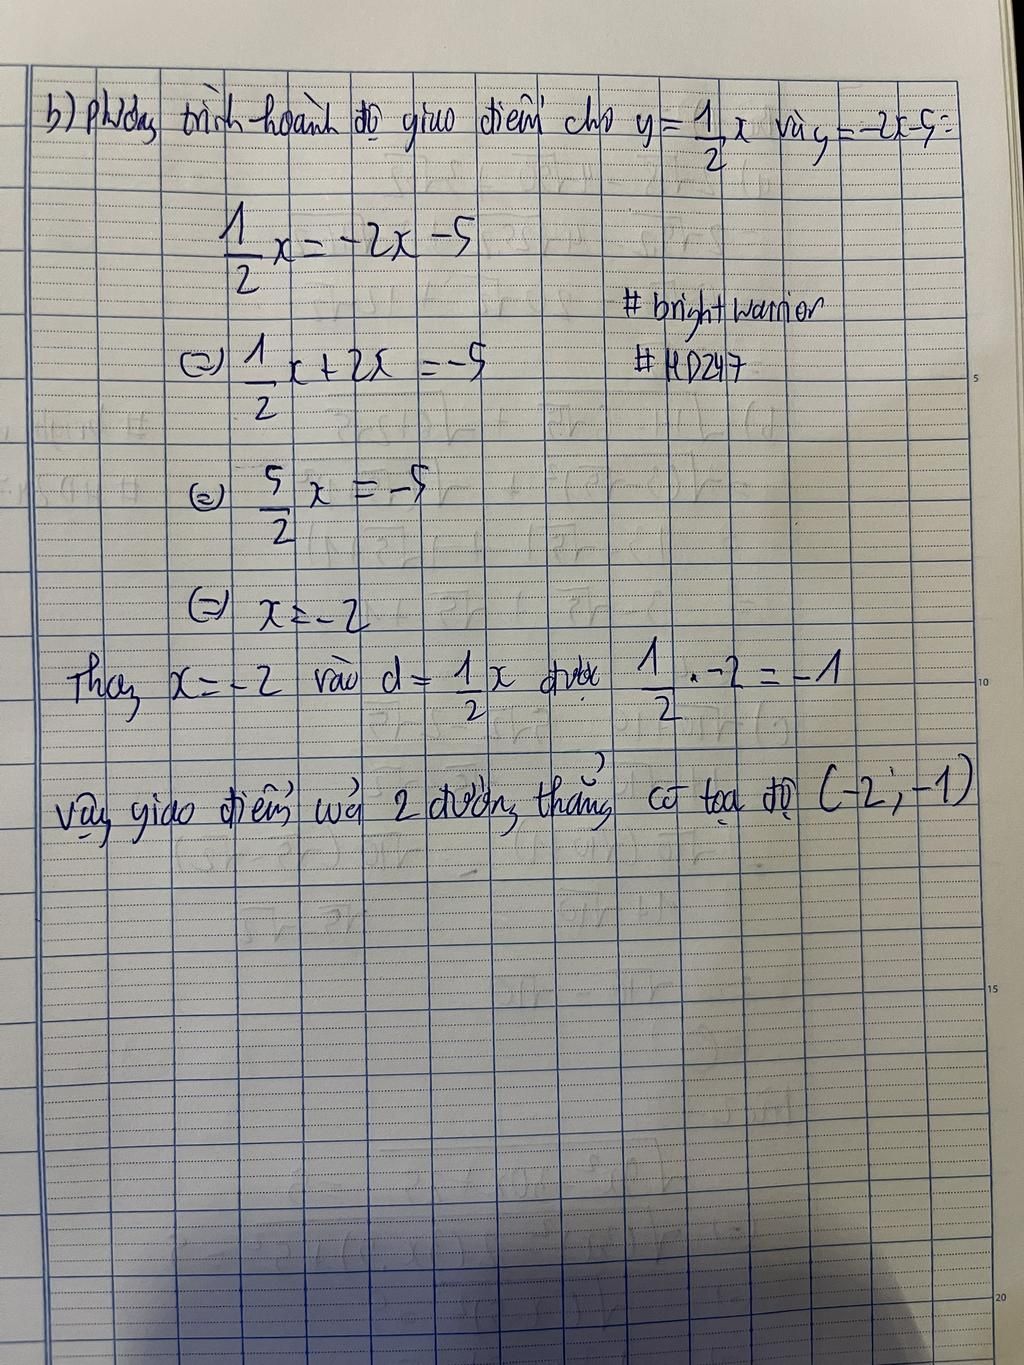 b) phương trình hoành độ giao điểm cho y = 1/2 x và y = -2x-5:
1/2 x = -2x - 5
# bright warrior
(=) 1/2 x + 2x = -5
# HD247
(=) 5/2 x = -5
(=) x = -2
Thay x = -2 vào d = 1/2 x được 1/2 . -2 = -1
vậy giao điểm của 2 đường thẳng có tọa độ (-2; -1)
5
10
15
20